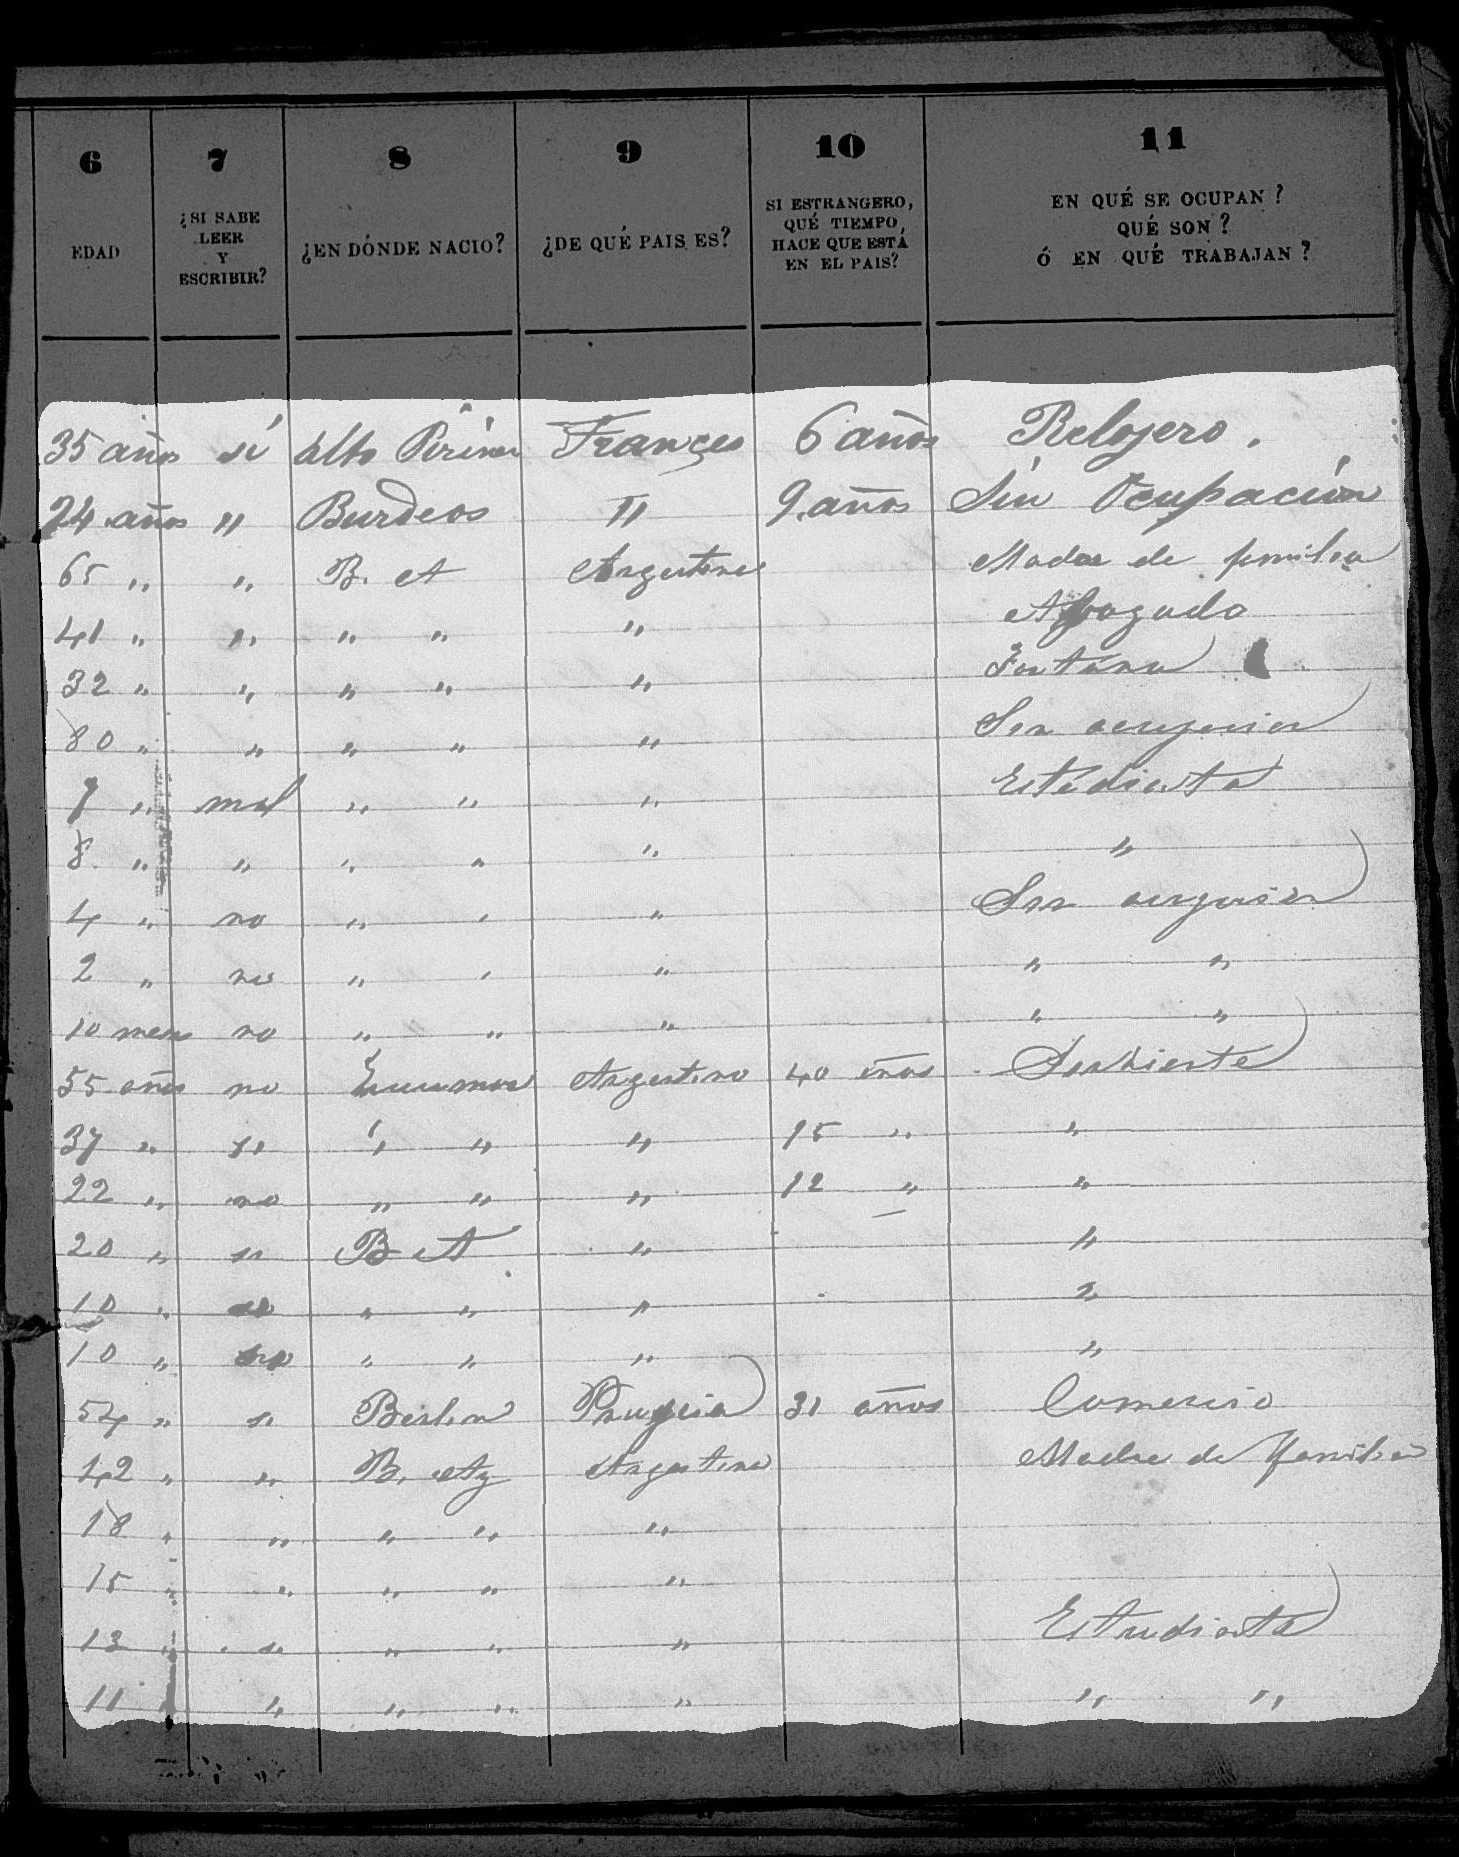 6 7 8 9 10 11
EDAD ¿SI SABE LEER Y ESCRIBIR? ¿EN DÓNDE NACIO? ¿DE QUÉ PAIS ES? SI ESTRANGERO, QUÉ TIEMPO, HACE QUE ESTÁ EN EL PAIS? EN QUÉ SE OCUPAN? QUÉ SON? Ó EN QUÉ TRABAJAN?
35 años si Alto Frances 6 años Relojero.
24 años " Burdeos " 9 años Sin Ocupación
65 " " B. A Argentina Madre de familia
41 " " " " " Abogado
32 " " " " "
80 " " " " "
7 " mal " " " Estudiante
8 " " " " " "
4 " no " " "
2 " no " " " " "
10 meses no " " " " "
55 años no Argentino 40 años Sirviente
37 " si " " " 15 " "
22 " no " " " 12 " "
20 " si B A " "
10 " " " " "
10 " no " " " "
54 " si Berlin Prusia 31 años Comercio
42 " " B. Ay Argentina Madre de familia
18 " " " " "
15 " " " " "
13 " si " " " Estudiante
11 " " " " " " "